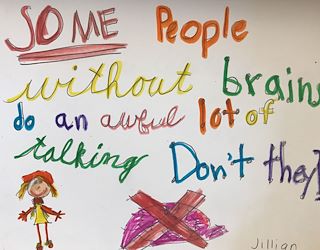 SOME People
without brains
do an awful lot of
talking Don't they?
Jillian